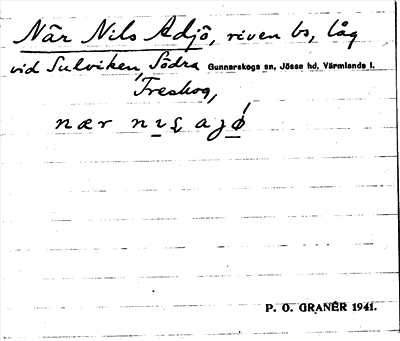 När Nils Adjö, riven bs, låg
vid Sulviken Södra Gunnarskogs sn, Jösse hd, Värmlands l.
Treskog,
nær
P. O. GRANÉR 1941.